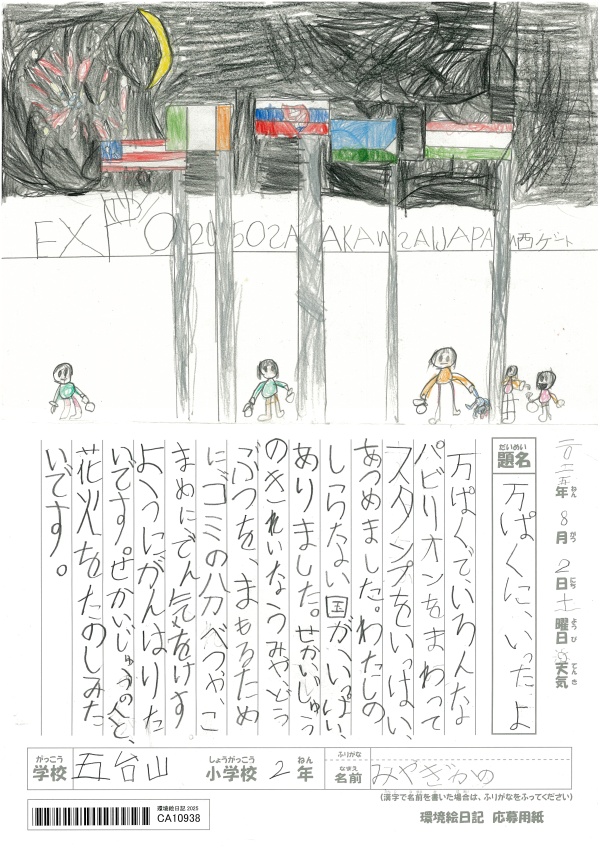 EXPO 2025 OSAKA KANSAI JAPAN 西ゲート
二〇二五年 8月 2日 土曜日 天気
ねん がつ にち ようび てんき
だいめい
題名
万ぱくに、いったよ
万ぱくでいろんな
パビリオンをまわって
スタンプをいっぱい、
あつめました。わたしの
しらない国が、いっぱい、
ありました。せかいじゅう
のきれいなうみや、どう
ぶつを、まもるため
にゴミの分べつや、こ
まめにでん気をけす
ようにがんばりた
いです。せかいじゅうの人と、
花火をたのしみた
いです。
がっこう
学校 五台山
しょうがっこう
小学校 2年
ねん
ふりがな
なまえ
名前 みやざかの
(漢字で名前を書いた場合は、ふりがなをふってください)
環境絵日記 2025
CA10938
環境絵日記 応募用紙